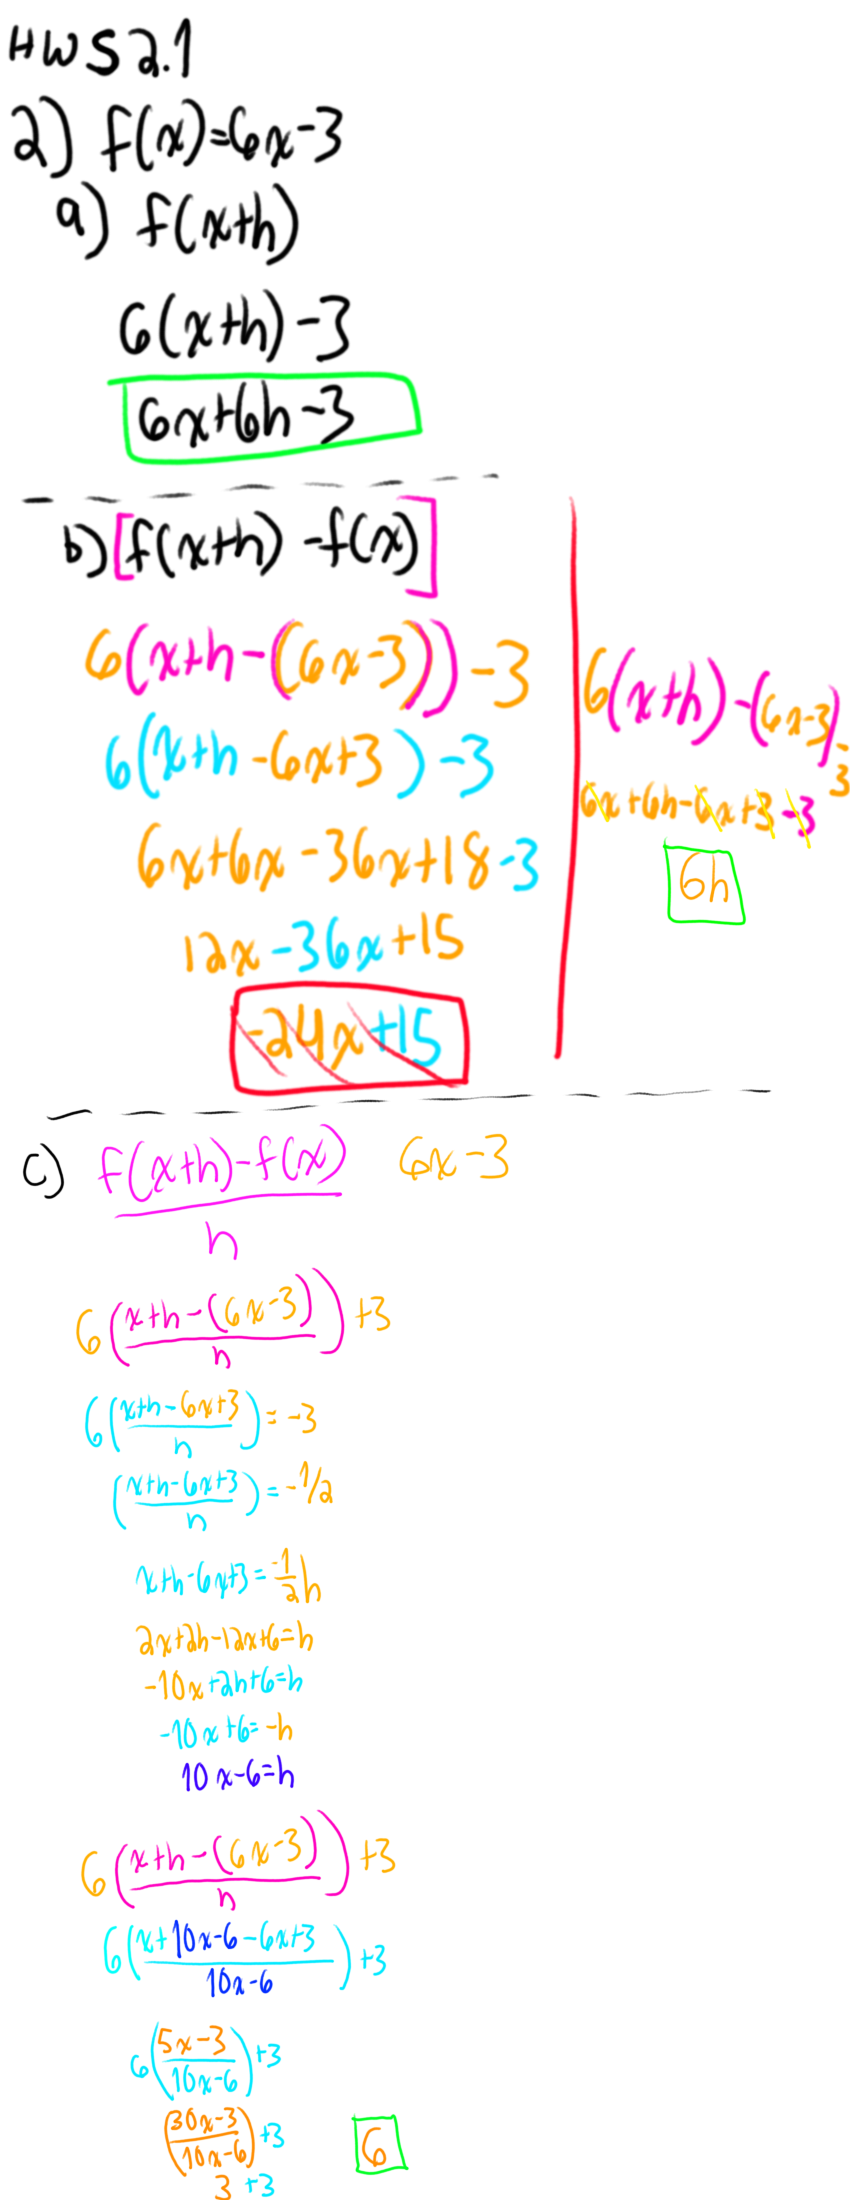 HWS 2.1
2) f(x)=6x-3
a) f(x+h)
6(x+h)-3
6x+6h-3
b) [f(x+h)-f(x)]
6(x+h-((6x-3))-3
6(x+h-6x+3)-3
6x+6x-36x+18-3
12x-36x+15
-24x+15
6(x+h)-(6x-3)-3
6x+6h-6x+3-3
6h
c) f(x+h)-f(x) 6x-3
h
6(x+h-(6x-3))+3
h
6(x+h-6x+3)=-3
h
(x+h-6x+3)=-1/2
h
x+h-6x+3=-1/2h
2x+2h-12x+6=h
-10x+2h+6=h
-10x+6=-h
10x-6=h
6(x+h-(6x-3))+3
h
6(x+10x-6-6x+3)+3
10x-6
6(5x-3)+3
10x-6
(30x-3)+3
10x-6
3 +3
6